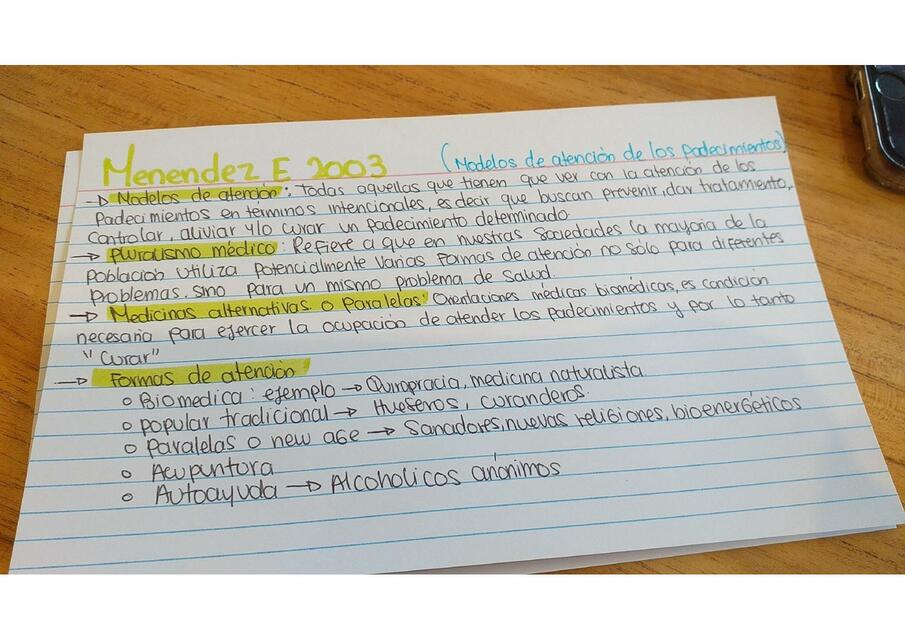 Menendez E 2003 (Modelos de atención de los padecimientos)
→ Modelos de atención: Todas aquellas que tienen que ver con la atención de los
Padecimientos en términos intencionales, es decir que buscan prevenir, dar tratamiento,
Controlar, aliviar y/o curar un padecimiento determinado
→ pluralismo médico: Refiere a que en nuestras Sociedades la mayoria de la
Poblacion utiliza potencialmente varias formas de atención no sólo para diferentes
Problemas. sino para un mismo problema de salud.
→ Medicinas alternativas o Paralelas: Orientaciones médicas biomédicas, es condición
necesaria para ejercer la ocupación de atender los padecimientos y por lo tanto
"Curar"
→ Formas de atención
o Biomedica: ejemplo → Quiropracia, medicina naturalista.
o popular tradicional → Hueseros, curanderos.
o paralelas o new age → Sanadores, nuevas religiones, bioenergéticos
o Acupuntura
o Autoayuda → Alcoholicos anónimos